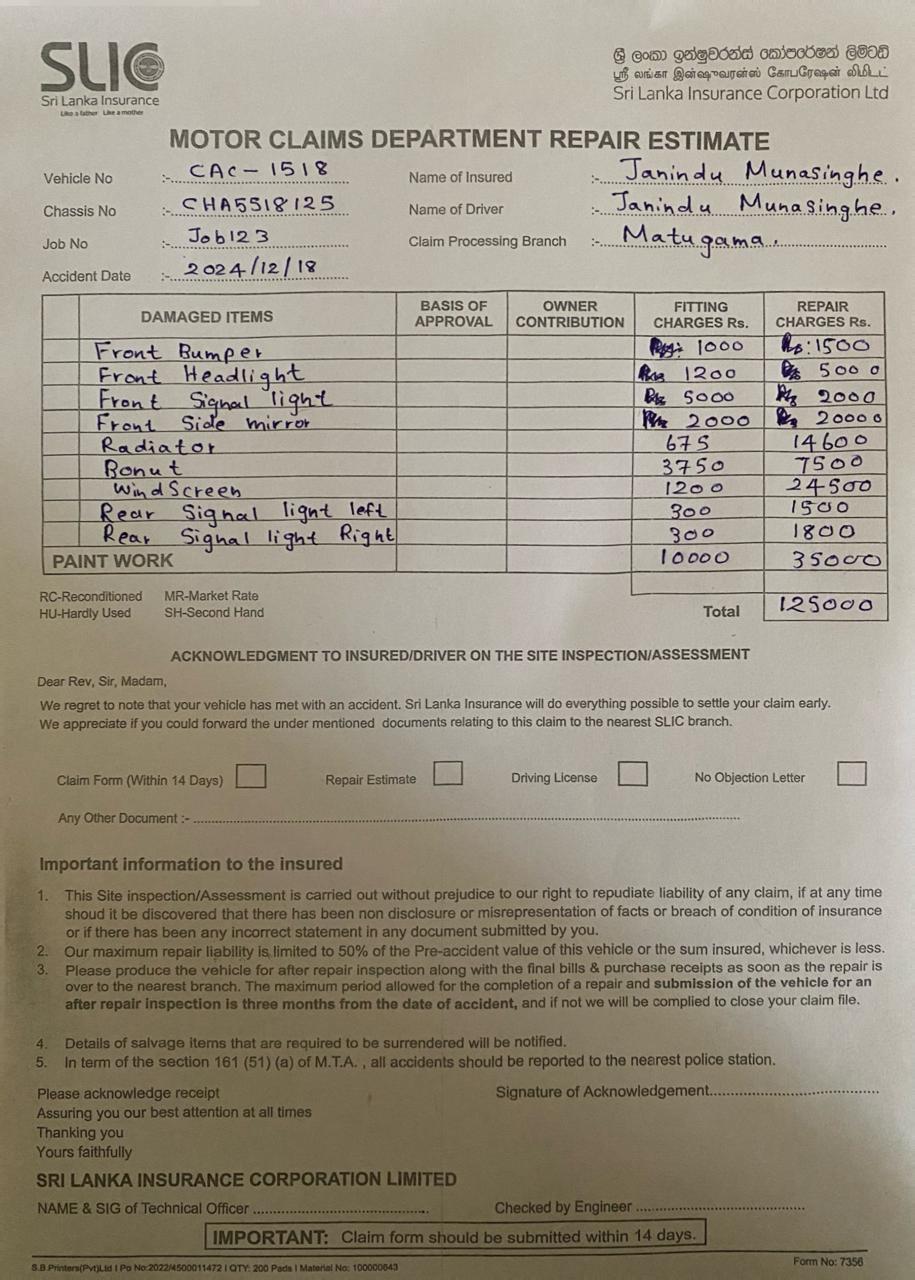 SLIC
Sri Lanka Insurance
Like a father Like a mother
ශ්‍රී ලංකා ඉන්ෂුවරන්ස් කෝපරේෂන් ලිමිටඩ්
ஸ்ரீ லங்கா இன்ஷுவரன்ஸ் கோபரேஷன் லிமிடட்
Sri Lanka Insurance Corporation Ltd
MOTOR CLAIMS DEPARTMENT REPAIR ESTIMATE
Vehicle No :- CAC - 1518 Name of Insured :- Janindu Munasinghe.
Chassis No :- CHA5518125 Name of Driver :- Janindu Munasinghe.
Job No :- Job123 Claim Processing Branch :- Matugama.
Accident Date :- 2024/12/18
DAMAGED ITEMS BASIS OF APPROVAL OWNER CONTRIBUTION FITTING CHARGES Rs. REPAIR CHARGES Rs.
Front Bumper 1000 Rs: 1500
Front Headlight 1200 5000
Front Signal light 5000 2000
Front Side mirror 2000 20000
Radiator 675 14600
Bonut 3750 7500
WindScreen 1200 24500
Rear Signal light left 300 1500
Rear Signal light Right 300 1800
PAINT WORK 10000 35000
RC-Reconditioned MR-Market Rate
HU-Hardly Used SH-Second Hand
Total 125000
ACKNOWLEDGMENT TO INSURED/DRIVER ON THE SITE INSPECTION/ASSESSMENT
Dear Rev, Sir, Madam,
We regret to note that your vehicle has met with an accident. Sri Lanka Insurance will do everything possible to settle your claim early.
We appreciate if you could forward the under mentioned documents relating to this claim to the nearest SLIC branch.
Claim Form (Within 14 Days) Repair Estimate Driving License No Objection Letter
Any Other Document :-
Important information to the insured
1. This Site inspection/Assessment is carried out without prejudice to our right to repudiate liability of any claim, if at any time
shoud it be discovered that there has been non disclosure or misrepresentation of facts or breach of condition of insurance
or if there has been any incorrect statement in any document submitted by you.
2. Our maximum repair liability is limited to 50% of the Pre-accident value of this vehicle or the sum insured, whichever is less.
3. Please produce the vehicle for after repair inspection along with the final bills & purchase receipts as soon as the repair is
over to the nearest branch. The maximum period allowed for the completion of a repair and submission of the vehicle for an
after repair inspection is three months from the date of accident, and if not we will be complied to close your claim file.
4. Details of salvage items that are required to be surrendered will be notified.
5. In term of the section 161 (51) (a) of M.T.A. , all accidents should be reported to the nearest police station.
Please acknowledge receipt Signature of Acknowledgement
Assuring you our best attention at all times
Thanking you
Yours faithfully
SRI LANKA INSURANCE CORPORATION LIMITED
NAME & SIG of Technical Officer Checked by Engineer
IMPORTANT: Claim form should be submitted within 14 days.
S.B.Printers(Pvt)Ltd I Po No:2022/4500011472 I QTY: 200 Pads I Material No: 100000643 Form No: 7356